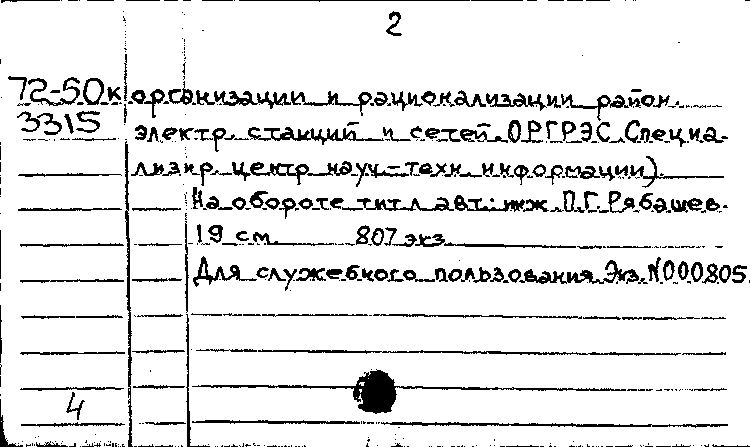 2
72-50к организации и рационализации район.
3315 электр. станций и сетей. ОРГРЭС. Специа-
лизир. центр науч.-техн. информации).
На обороте тит. л. авт.: инж. П.Г. Рябашев.
19 см. 807 экз.
Для служебного пользования. Экз. N000805.
4